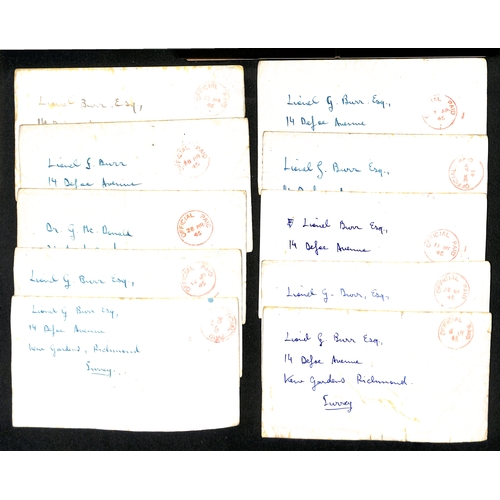 Lionel Burr Esq.,
14
OFFICIAL PAID
45
Lionel G Burr
14 Defoe Avenue
OFFICIAL PAID
45
Dr. G Mc Donald
OFFICIAL PAID
45
Lionel G Burr Esq.,
OFFICIAL PAID
45
Lionel G Burr Esq,
14 Defoe Avenue
Kew Gardens, Richmond
Surrey.
Lionel G. Burr Esq.,
14 Defoe Avenue
OFFICIAL PAID
45
Lionel G. Burr Esq.,
14 Defoe Avenue
OFFICIAL PAID
Lionel Burr Esq,
14 Defoe Avenue
OFFICIAL PAID
45
Lionel G. Burr, Esq,
OFFICIAL PAID
45
Lionel G. Burr Esq.,
14 Defoe Avenue
Kew Gardens Richmond.
Surrey
OFFICIAL PAID